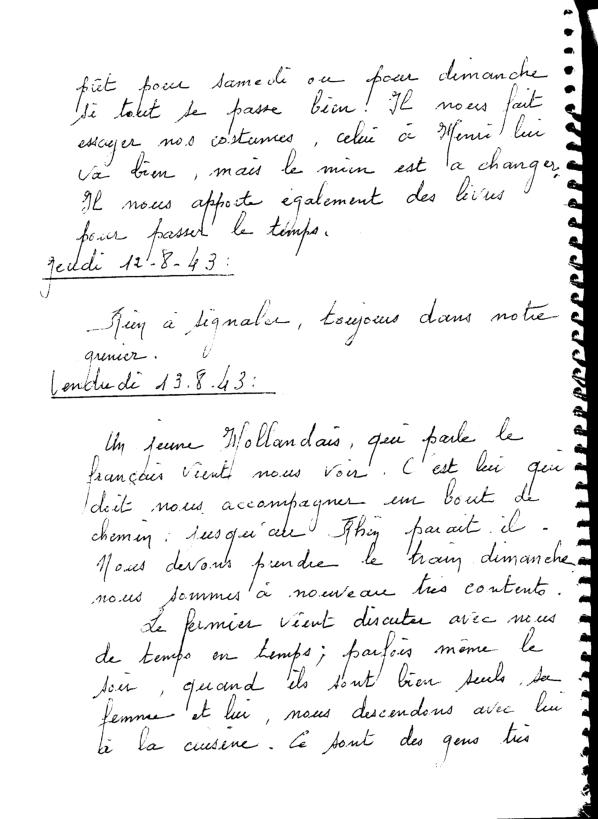 prêt pour samedi ou pour dimanche
si tout se passe bien! Il nous fait
essayer nos costumes, celui à Henri lui
va bien, mais le mien est a changer.
Il nous apporte également des livres
pour passer le temps.
Jeudi 12-8-43:
Rien à signaler, toujours dans notre
grenier.
Vendredi 13.8.43:
Un jeune Hollandais, qui parle le
français vient nous voir. C'est lui qui
doit nous accompagner un bout de
chemin: jusqu'au Rhin parait il.
Nous devons prendre le train dimanche
nous sommes à nouveau très contents.
Le fermier vient discuter avec nous
de temps en temps; parfois même le
soir, quand ils sont bien seuls, sa
femme et lui, nous descendons avec lui
à la cuisine. Ce sont des gens très